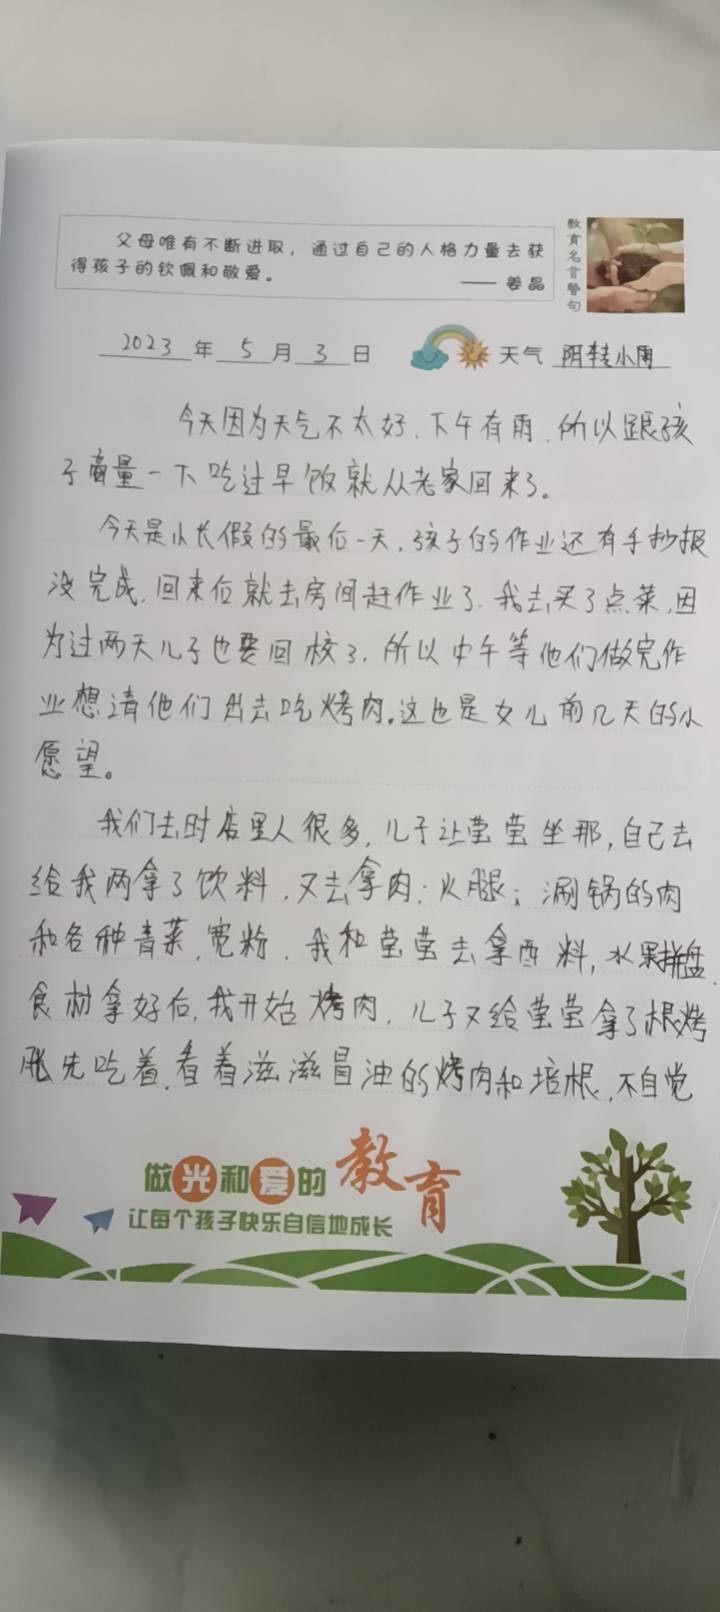 父母唯有不断进取，通过自己的人格力量去获
得孩子的钦佩和敬爱。
—— 姜晶
教育名言警句
2023年5月3日 天气 阴转小雨
今天因为天气不太好.下午有雨.所以跟孩
子商量一下吃过早饭就从老家回来了。
今天是小长假的最后一天.孩子的作业还有手抄报
没完成.回来后就去房间赶作业了.我去买了点菜.因
为过两天儿子也要回校了.所以中午等他们做完作
业想请他们出去吃烤肉.这也是女儿前几天的小
愿望。
我们去时店里人很多,儿子让莹莹坐那,自己去
给我两拿了饮料.又去拿肉;火腿;涮锅的肉
和各种青菜.宽粉.我和莹莹去拿西料,水果拼盘.
食材拿好后.我开始烤肉.儿子又给莹莹拿了根烤
肠先吃着.看着滋滋冒油的烤肉和培根.不自觉
做光和爱的教育
让每个孩子快乐自信地成长